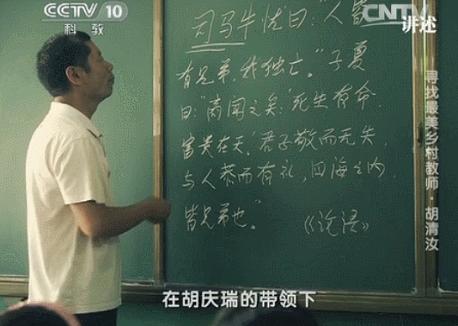 CCTV 10
科教
CNTV
讲述
司马牛忧曰:“人皆
有兄弟,我独亡。”子夏
曰:“商闻之矣:‘死生有命,
富贵在天’。君子敬而无失,
与人恭而有礼,四海之内,
皆兄弟也。”
《论语》
寻找最美乡村教师·胡清汝
在胡庆瑞的带领下